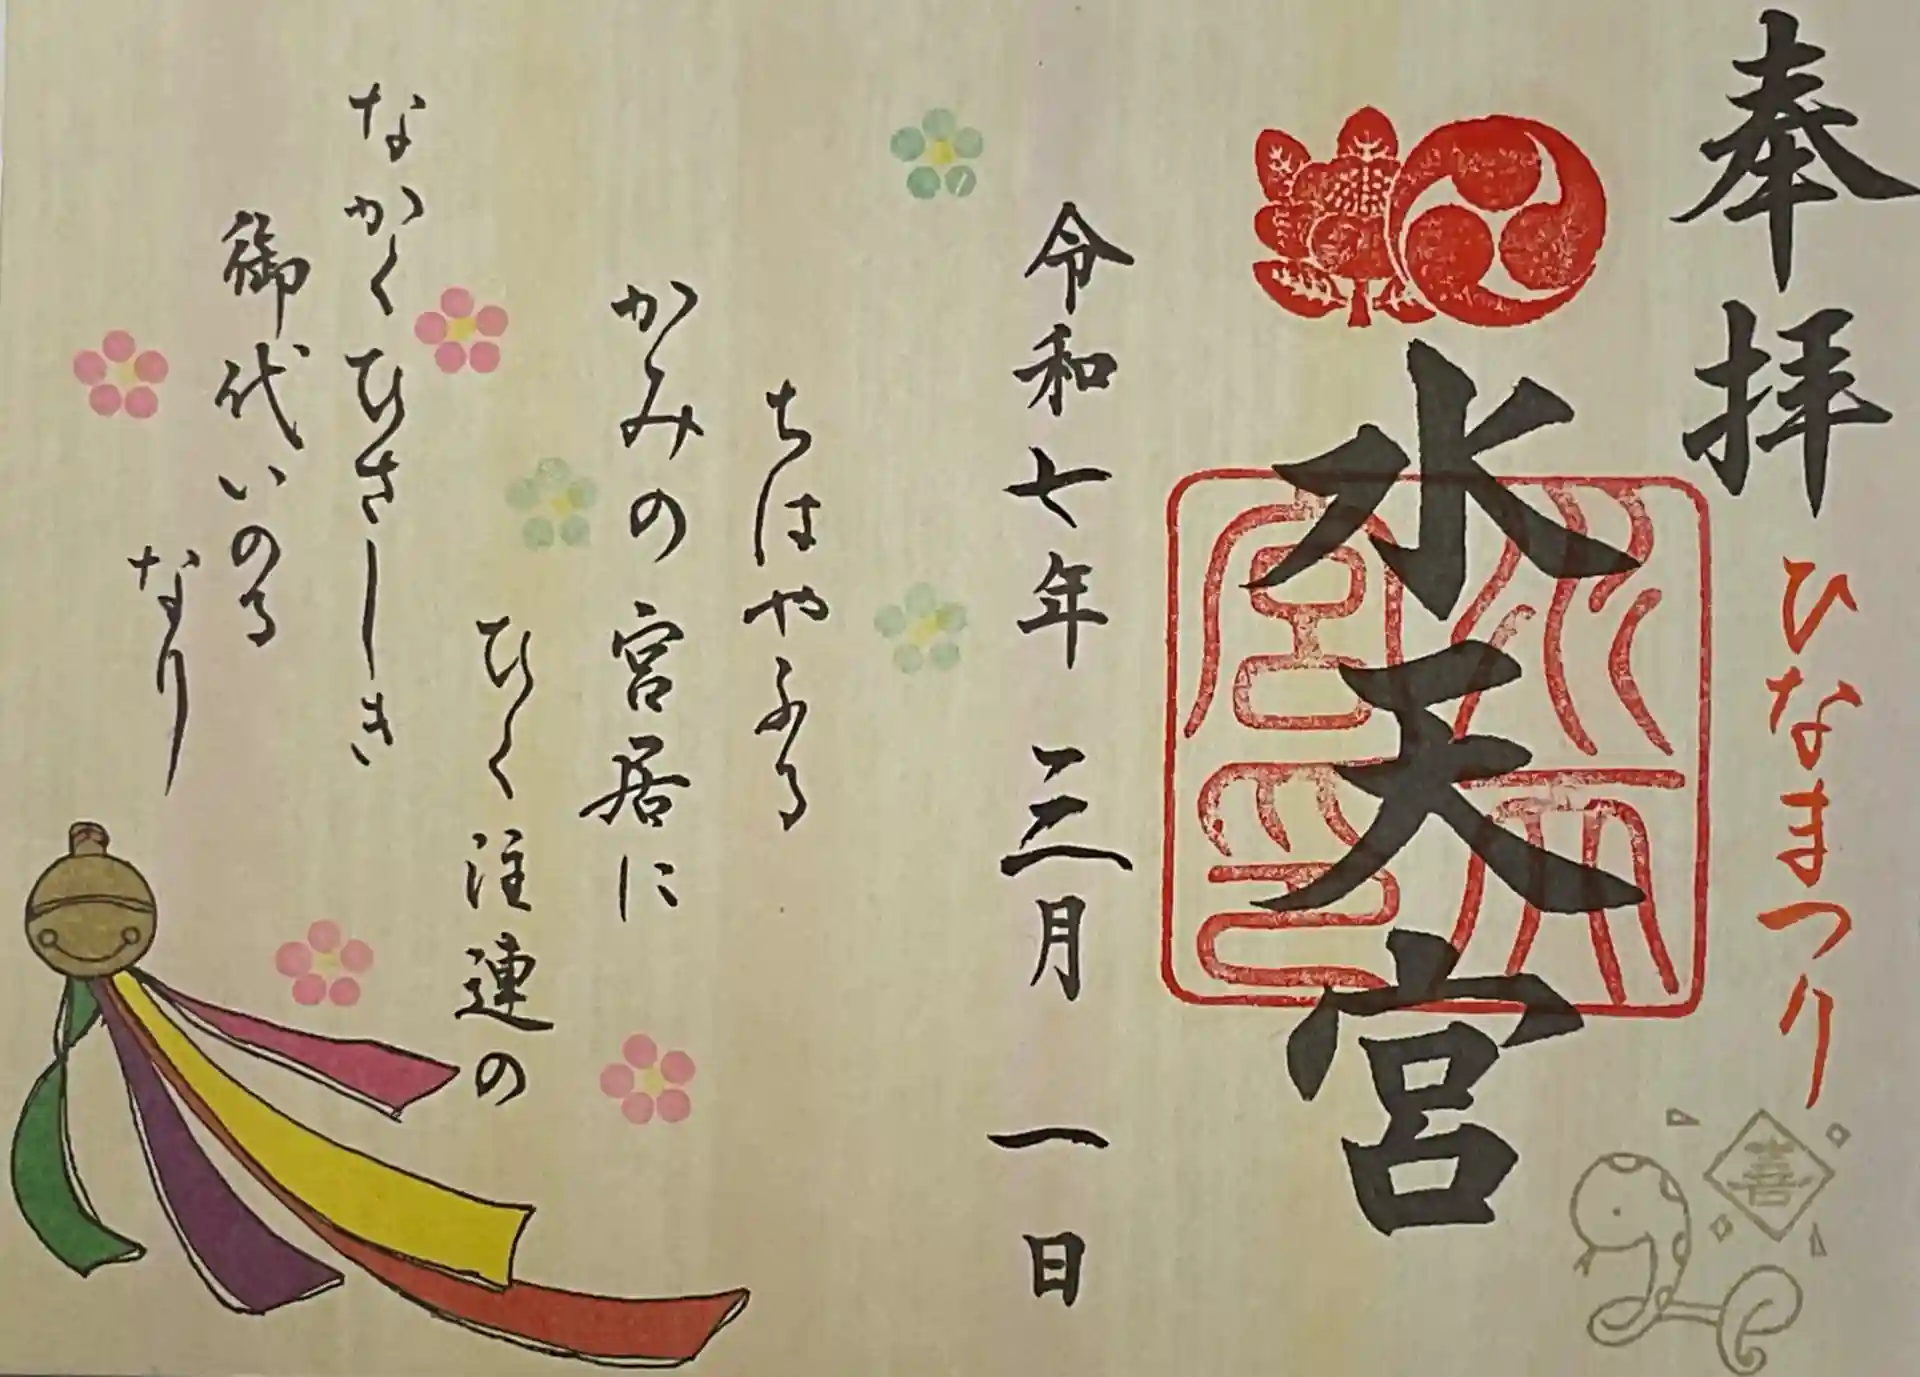 奉拝
ひなまつり
喜
水天宮
水天宮印
令和七年三月一日
ちはやふる
かみの宮居に
ひく注連の
なかくひさしき
御代いのる
なり